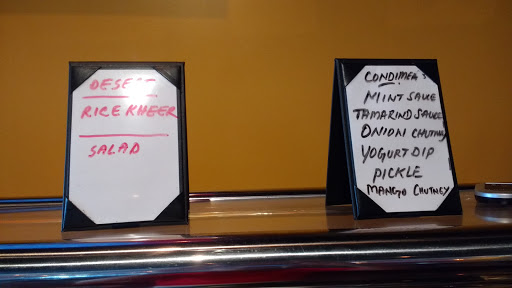 DESERT
RICE KHEER
SALAD
CONDIMEN S
MINT SAUCE
TAMARIND SAUCE
ONION CHUTNEY
YOGURT DIP
PICKLE
MANGO CHUTNEY